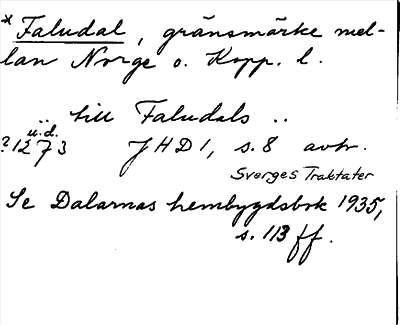 * Faludal, gränsmärke mel-
lan Norge o. Kopp. l.
.. till Faludals ..
u.d.
? 1273 JHD 1, s. 8 avtr.
Sverges Traktater
Se Dalarnas hembygdsbok 1935,
s. 113 ff.